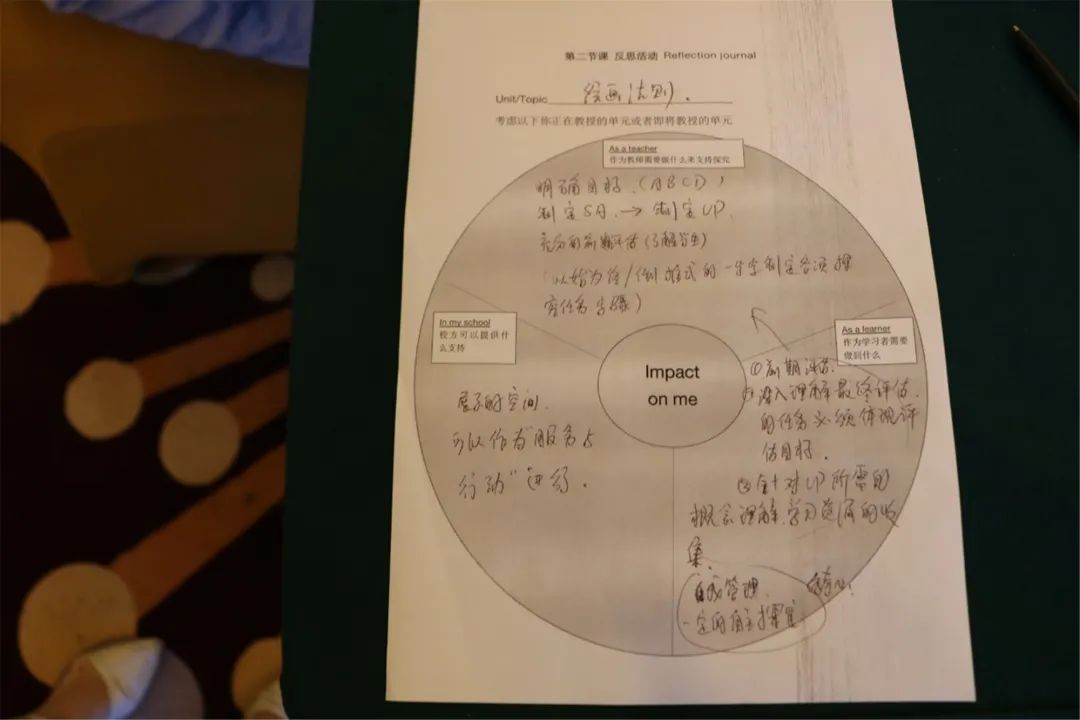 第二节课 反思活动 Reflection journal
Unit/Topic 绘画法则.
考虑以下你正在教授的单元或者即将教授的单元
As a teacher
作为教师需要做什么来支持探究
明确目标.(ABCD)
制定SA.→制定UP.
充分的前期评估(了解学生)
(以始为终/倒推式的一步步制定各项探
究任务步骤)
In my school
校方可以提供什
么支持
展示的空间.
可以作为"服务与
行动"进行.
Impact
on me
As a learner
作为学习者需要
做到什么
①前期评估.
②深入理解最终评估.
的任务必须体现评
估目标.
③针对UP所需的
概念理解.学习资源的收
集.
自我管理.
一定的自主探究.